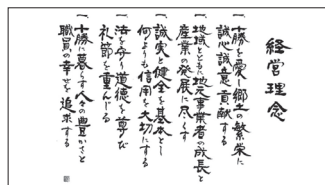 経営理念
一、十勝を愛し郷土の繁栄に
誠心誠意貢献する
一、地域とともに地元事業者の成長と
産業の発展に尽くす
一、誠実と健全を基本とし
何よりも信用を大切にする
一、法を守り道徳を尊び
礼節を重んじる
一、十勝に暮らす人々の豊かさと
職員の幸せを追求する